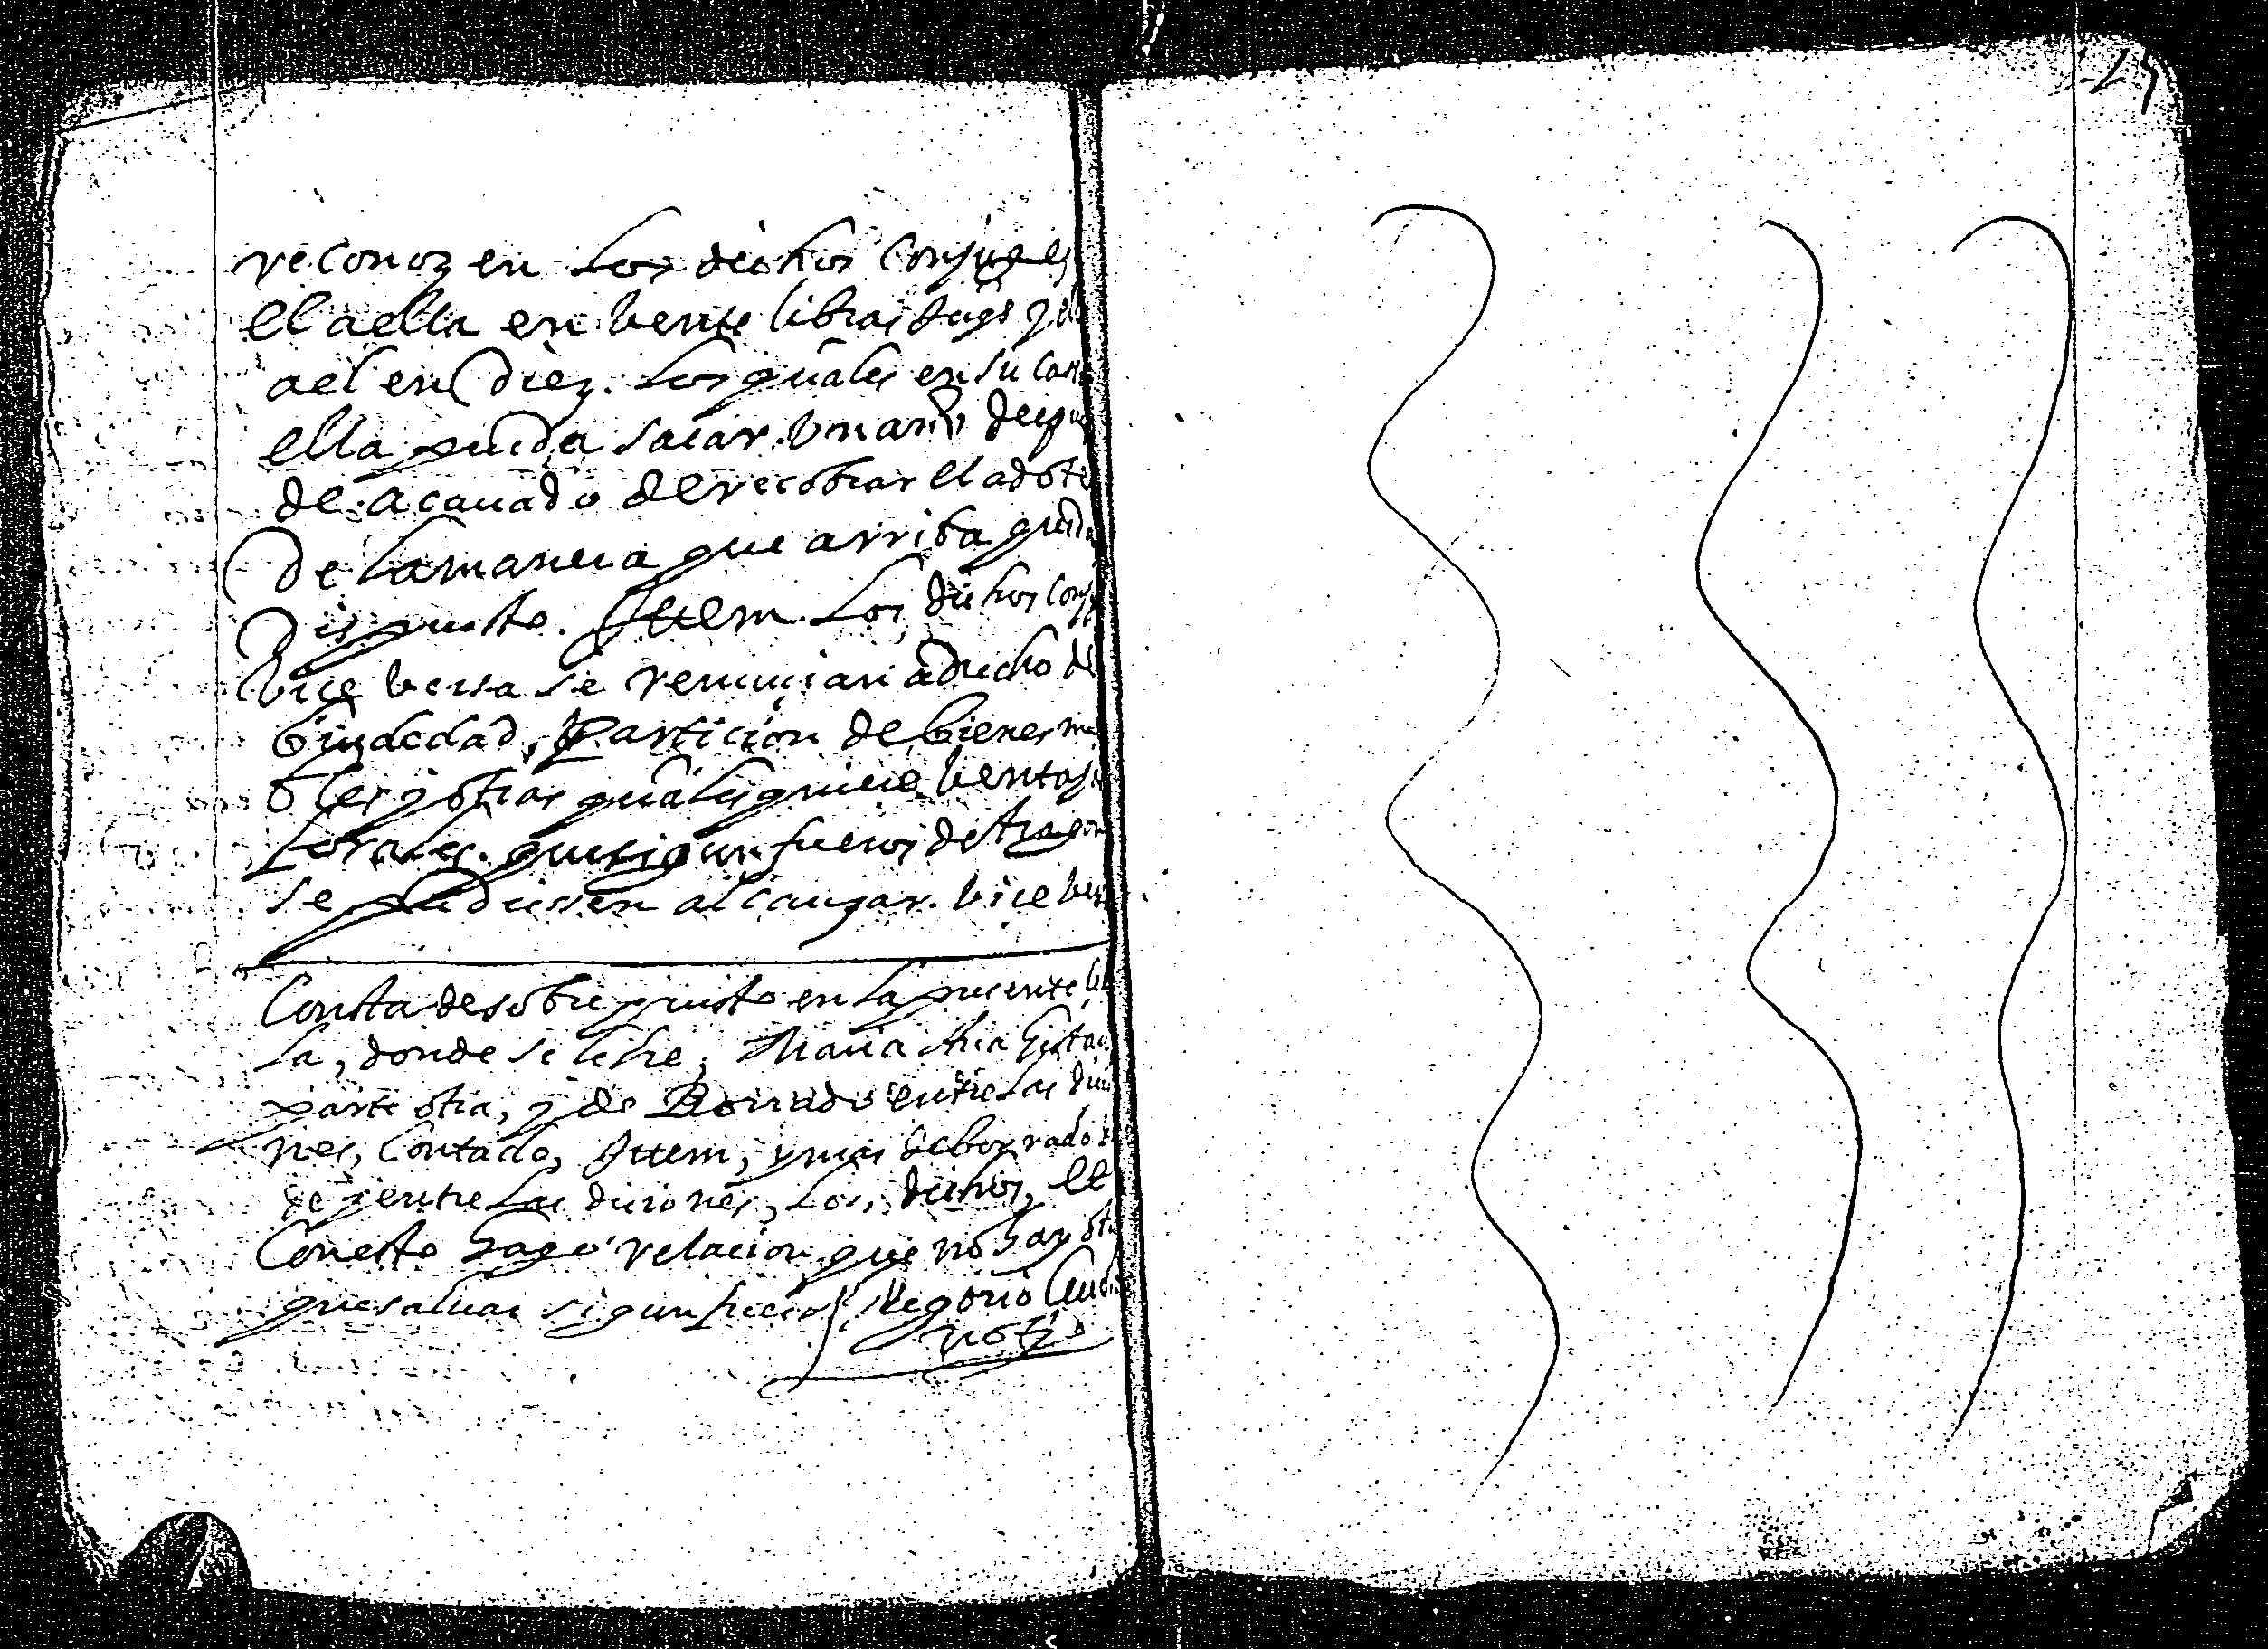 reconozen los dichos conjuges
el a ella en vente libras Jaqs y
a el en diez. los quales en su
ella pueda sacar. un año
de acauado de recobrar el adote
De la manera que arriba queda
Dispuesto. Ittem los dichos
vice versa se renunçian a drecho de
biudedad, particion de bienes
bles y otras quales quiere
forales. que sigun fueros de Aragon
se pudiessen alcançar. vice
Consta de sobre puesto en la presente
la, donde se lehe, Maria
parte otra, y de Borrado entre las
nes, Contado, Ittem, y mas de borrado
de entre las diciones, los, dichos, et
Con esto hago relacion que no hay
que saluar sigun fuero
notº